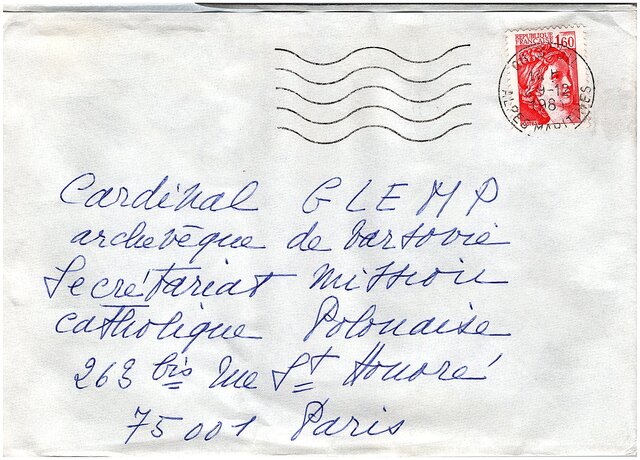 REPUBLIQUE
FRANCAISE 1,60
ALPES MARITIMES
Cardinal GLEMP
archevêque de Varsovie
Secrétariat Mission
Catholique Polonaise
263 bis rue St Honoré
75001 Paris